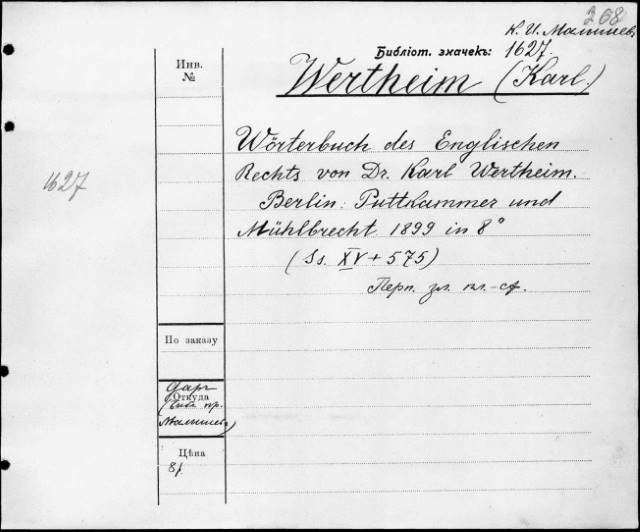 268
К. И. Малышев
Библіот. значекъ: 1627.
Инв.
№
Wertheim (Karl)
Wörterbuch des Englischen
Rechts von Dr. Karl Wertheim.
1627
Berlin: Puttkammer und
Mühlbrecht 1899 in 8°
(Ss. XV + 575)
Перп. зл. кл.-сф.
По заказу
даръ
Откуда
(Библ. пр.
Малышева)
Цѣна
8f.